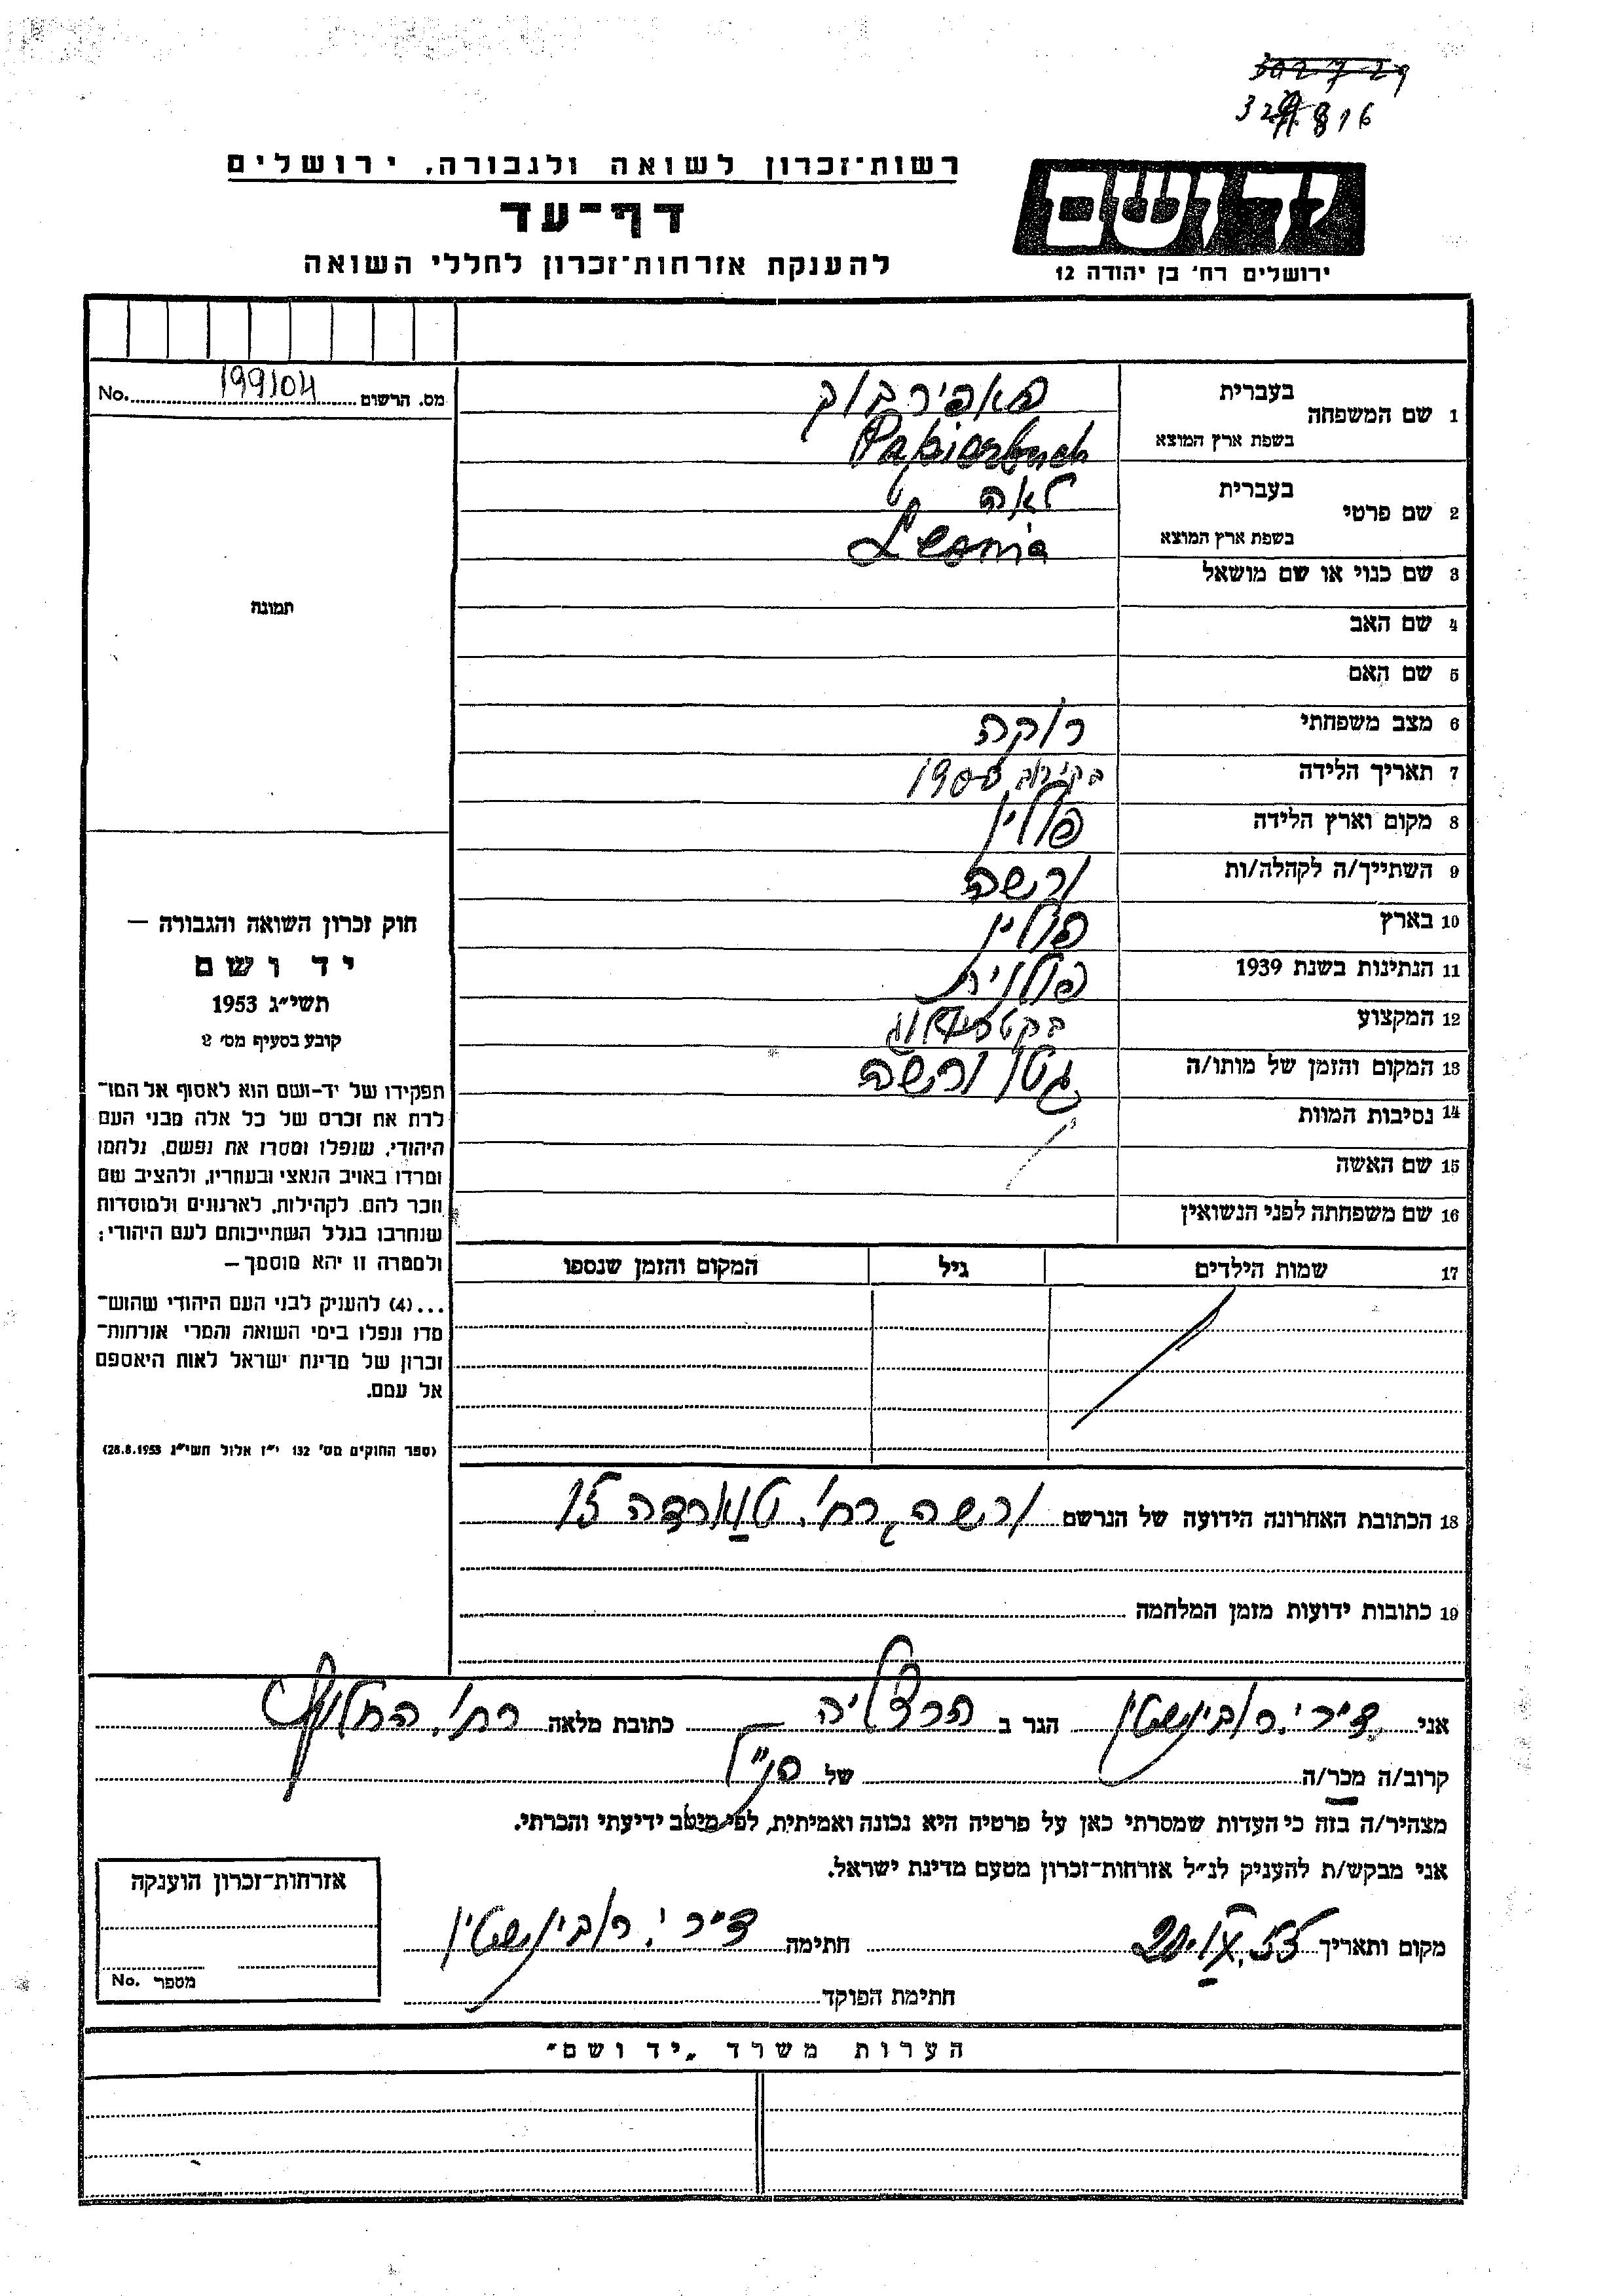 302729
32 816
יד ושם
ירושלים רח׳ בן יהודה 12
רשות־זכרון לשואה ולגבורה, ירושלים
דף־עד
להענקת אזרחות־זכרון לחללי השואה
מס. הרשום 199104 No.
1 שם המשפחה
בעברית פאפירבוך
בשפת ארץ המוצא Papierbuch
2 שם פרטי
בעברית לאה
בשפת ארץ המוצא Leonia
3 שם כנוי או שם מושאל
4 שם האב
5 שם האם
6 מצב משפחתי רוקה
7 תאריך הלידה בקירוב 1908
8 מקום וארץ הלידה פולין
9 השתייך/ה לקהלה/ות ורשה
10 בארץ פולין
11 הנתינות בשנת 1939 פולנית
12 המקצוע
13 המקום והזמן של מותו/ה גטו ורשה
14 נסיבות המוות
15 שם האשה
16 שם משפחתה לפני הנשואין
17 שמות הילדים גיל המקום והזמן שנספו
תמונה
חוק זכרון השואה והגבורה —
יד ושם
תשי״ג 1953
קובע בסעיף מס׳ 2
תפקידו של יד-ושם הוא לאסוף אל המו־
לדת את זכרם של כל אלה מבני העם
היהודי, שנפלו ומסרו את נפשם, נלחמו
ומרדו באויב הנאצי ובעוזריו, ולהציב שם
וזכר להם, לקהילות, לארגונים ולמוסדות
שנחרבו בגלל השתייכותם לעם היהודי;
ולמטרה זו יהא מוסמך —
...(4) להעניק לבני העם היהודי שהוש־
מדו ונפלו בימי השואה והמרי אזרחות־
זכרון של מדינת ישראל לאות היאספם
אל עמם.
(ספר החוקים מס׳ 132 י״ז אלול תשי״ג 28.8.1953)
18 הכתובת האחרונה הידועה של הנרשם ורשה, רח׳ טווארדה 15
19 כתובות ידועות מזמן המלחמה
אני רובינשטין הגר ב הרצליה כתובת מלאה רח׳ החלוץ
קרוב/ה מכר/ה של הנ״ל
מצהיר/ה בזה כי העדות שמסרתי כאן על פרטיה היא נכונה ואמיתית, לפי מיטב ידיעתי והכרתי.
אני מבקש/ת להעניק לנ״ל אזרחות־זכרון מטעם מדינת ישראל.
מקום ותאריך 20. 55 חתימה רובינשטין
חתימת הפוקד
אזרחות־זכרון הוענקה
מספר No.
הערות משרד „יד ושם״